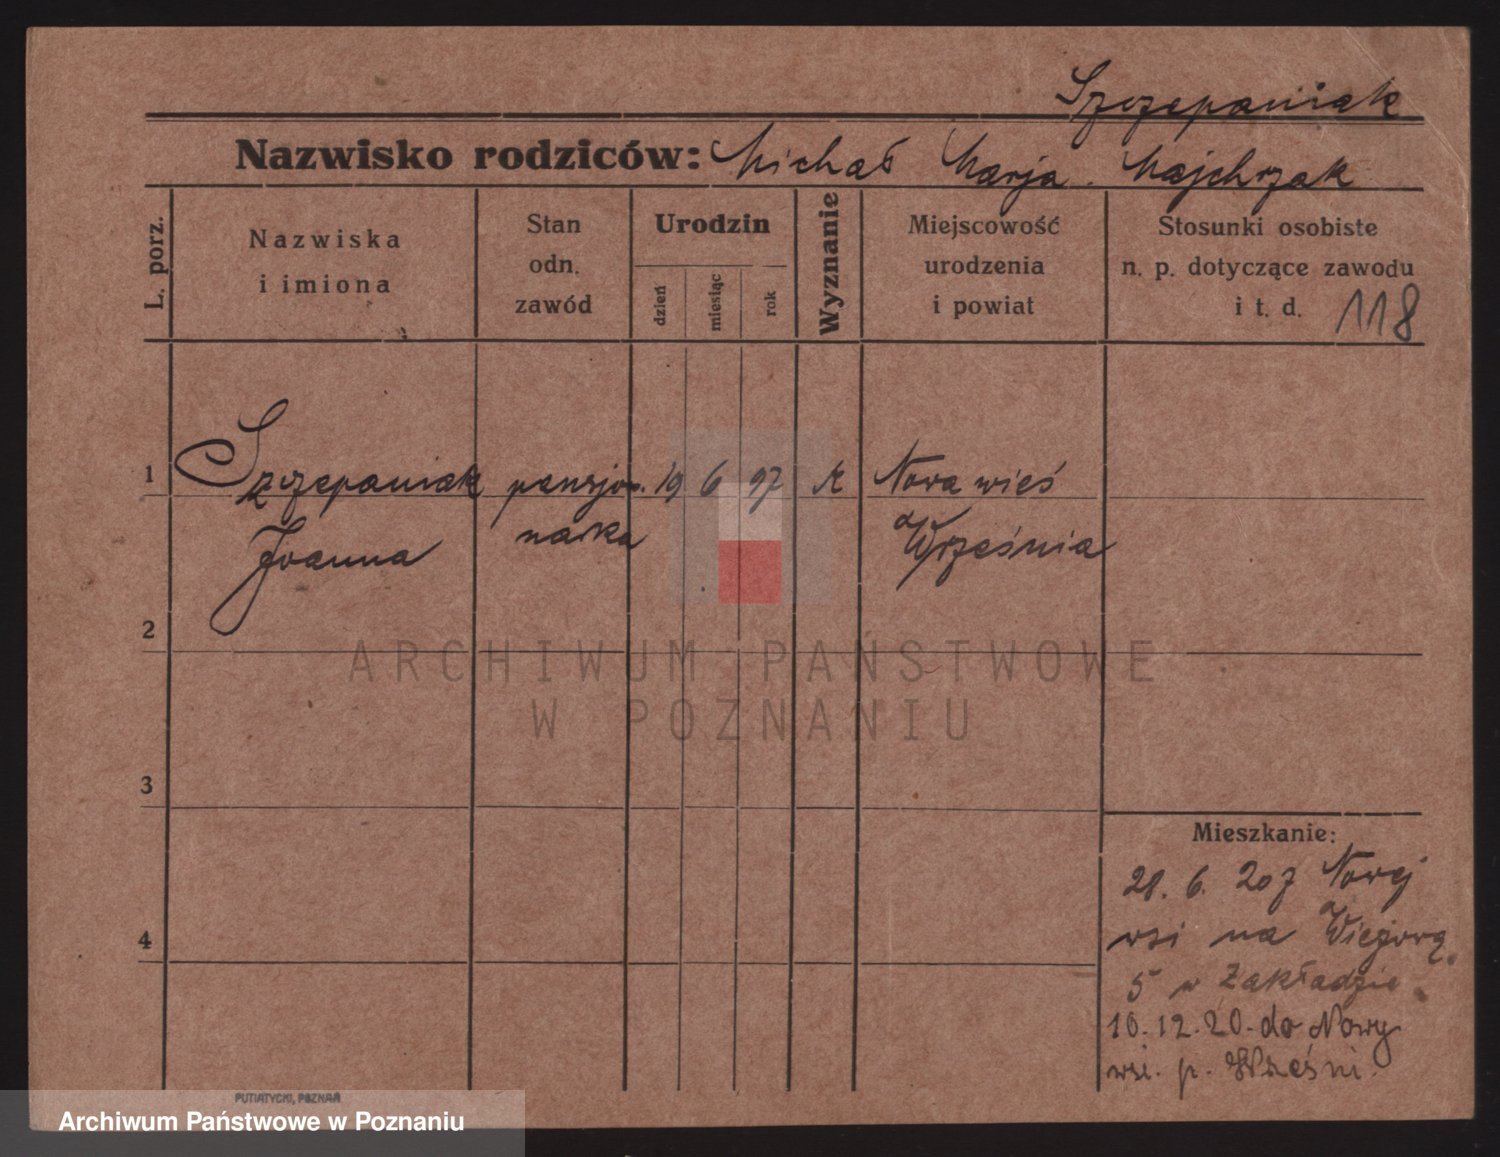 Szczepaniak
Nazwisko rodziców: Michał Marja Majchrzak
L. porz.
Nazwiska
i imiona
Stan
odn.
zawód
Urodzin
dzień
miesiąc
rok
Wyznanie
Miejscowość
urodzenia
i powiat
Stosunki osobiste
n. p. dotyczące zawodu
i t. d. 118
1 Szczepaniak pensjo- 19 6 97 K Nowa wieś
Joanna narka Września
2
ARCHIWUM PAŃSTWOWE
W POZNANIU
3
Mieszkanie:
28. 6. 20 z Nowej
4 wsi na Wieżową
5 w Zakładzie.
10. 12. 20. do Nowy
wsi. p. Wześni.
PUTIATYCKI, POZNAŃ
Archiwum Państwowe w Poznaniu